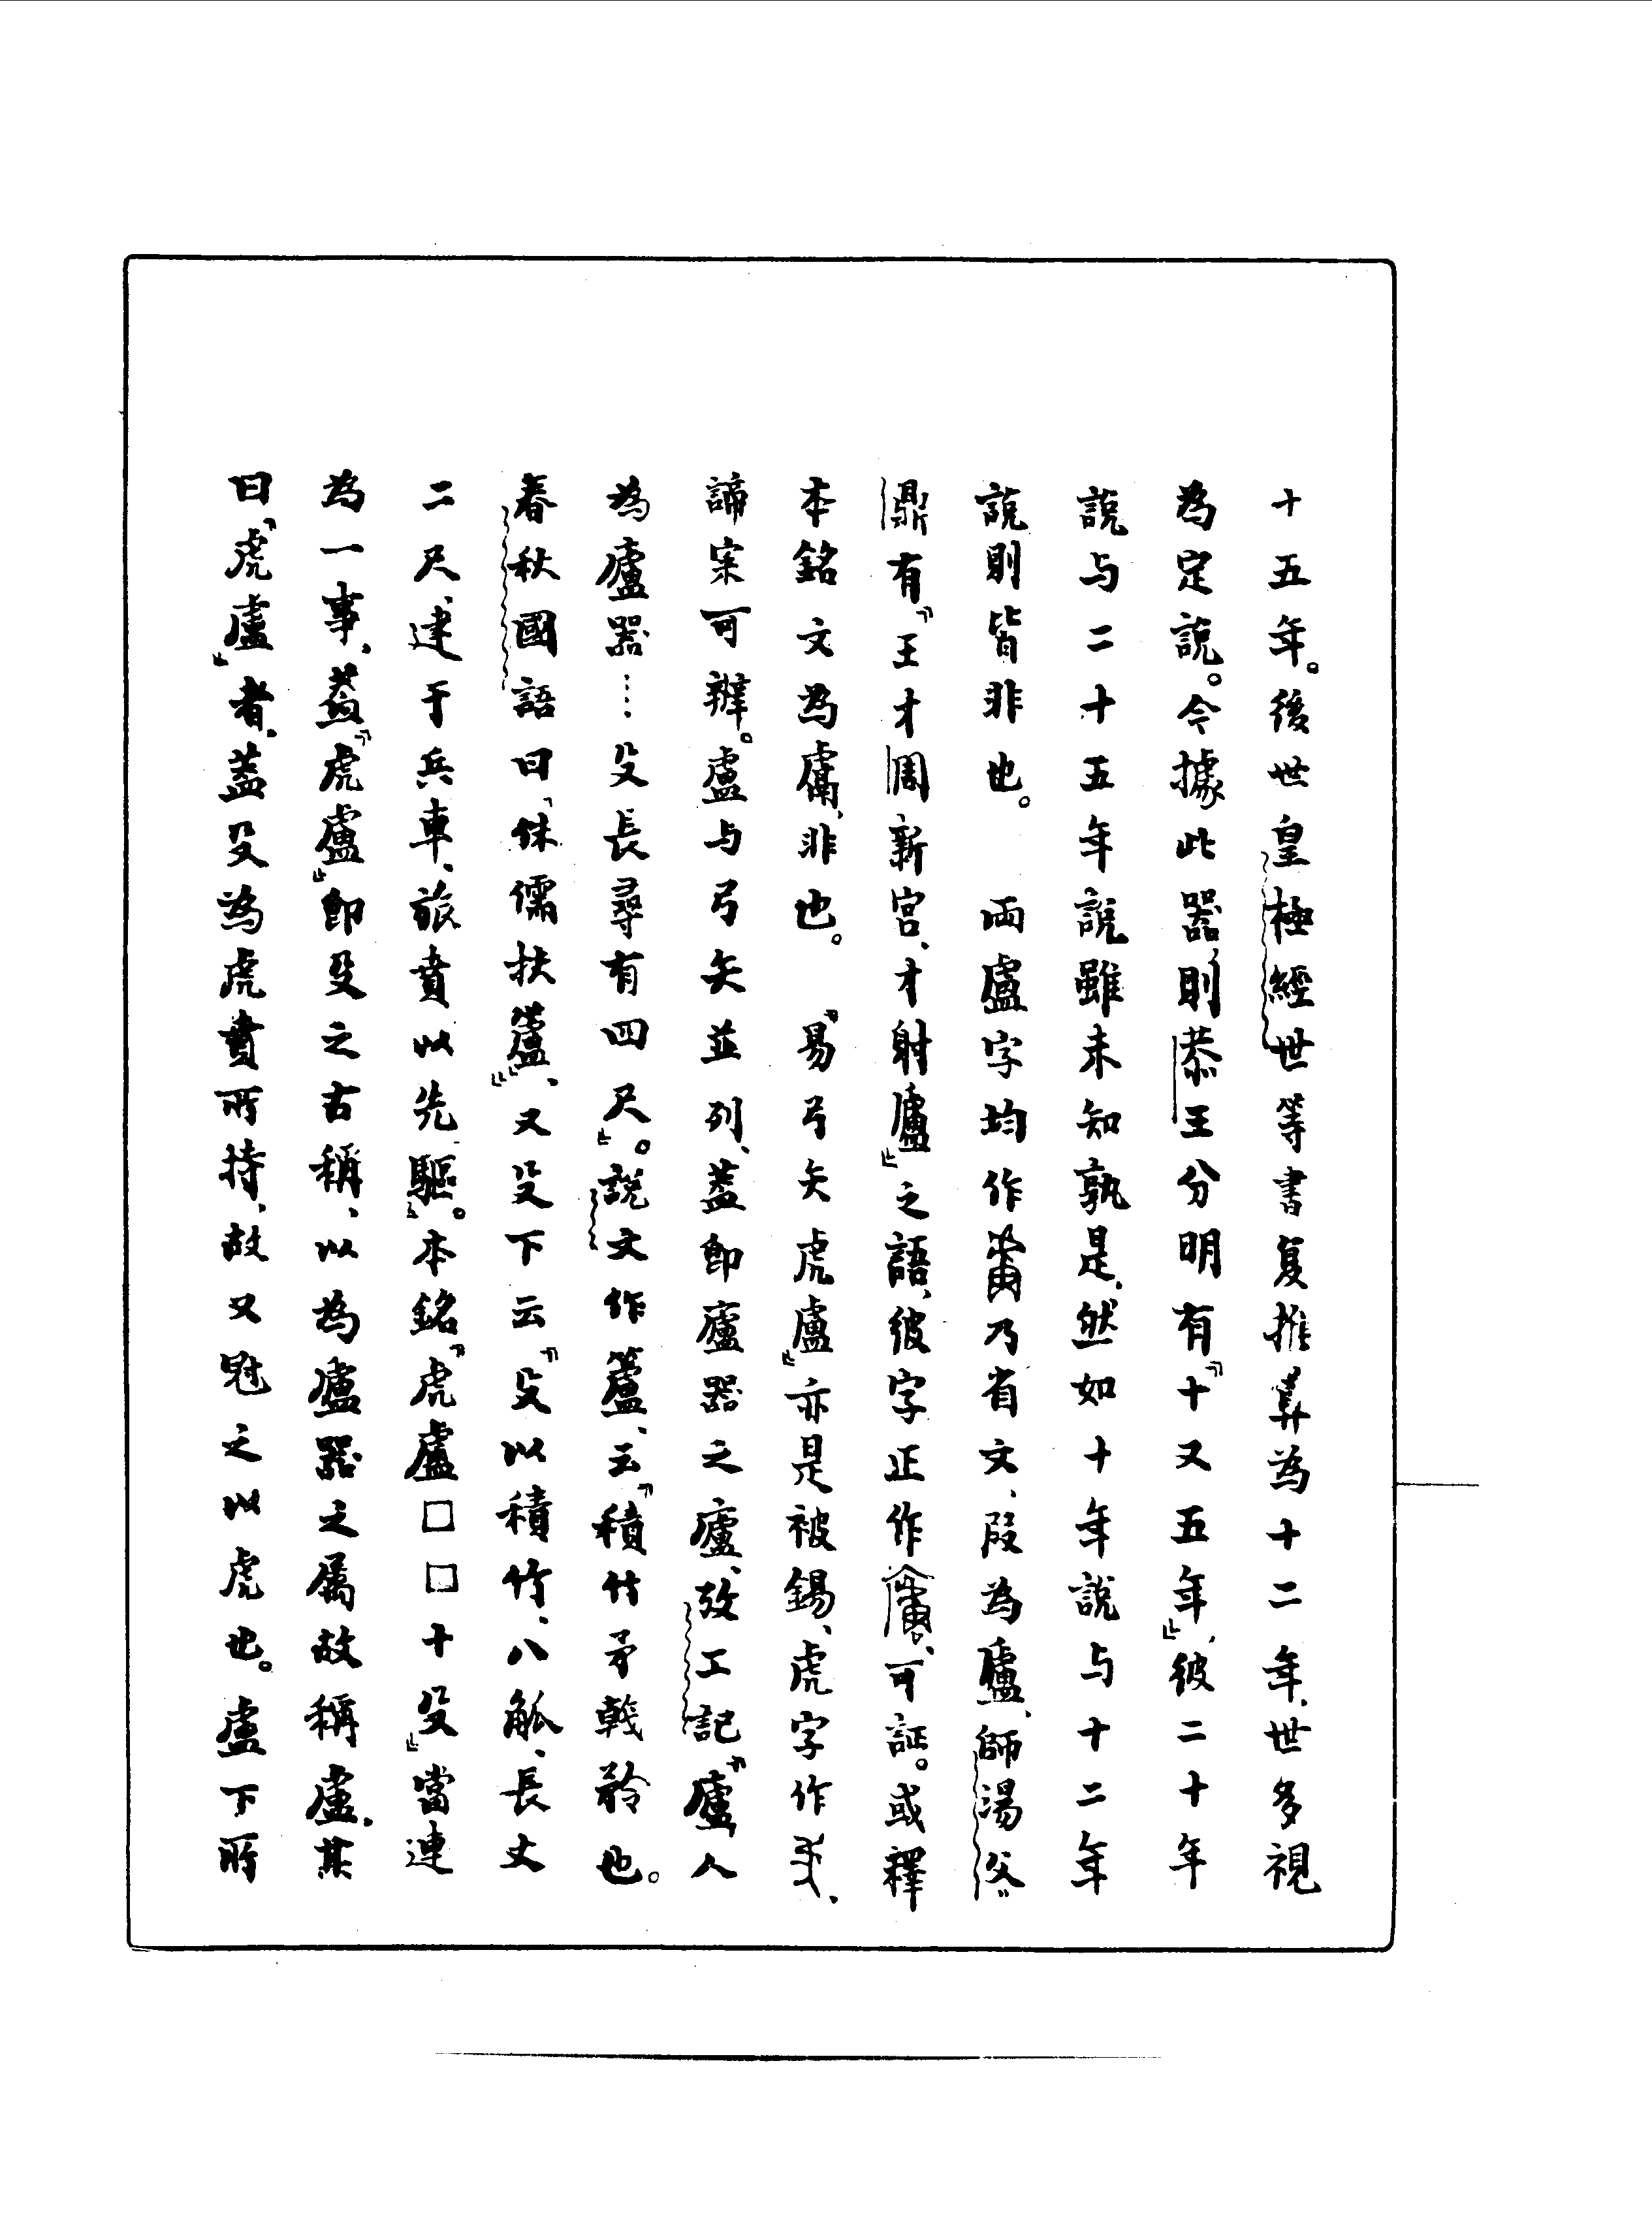 十五年。後世皇極經世等書复推算為十二年、世多視
為定說。今據此器、則恭王分明有『十又五年』、彼二十年
說与二十五年說、雖未知孰是、然如十年說与十二年
說則皆非也。　兩盧字均作乃省文、叚為廬、師湯父
鼎有『王才周新宮、才射廬』之語、彼字正作、可証。或釋
本銘文為、非也。　『易弓矢虎盧』亦是被錫、虎字作、
諦宷可辨。盧与弓矢並列、蓋即廬器之廬、攷工記『廬人
為廬器……殳長尋有四尺』。說文作籚、云『積竹矛戟矜也。
春秋國語曰「侏儒扶籚」』、又殳下云『殳以積竹、八觚、長丈
二尺、建于兵車、旅賁以先驅』。本銘『虎盧□□十殳』當連
為一事、蓋『虎盧』即殳之古稱、以為廬器之屬故稱盧、其
曰『虎盧』者、蓋殳為虎賁所持、故又冠之以虎也。盧下所